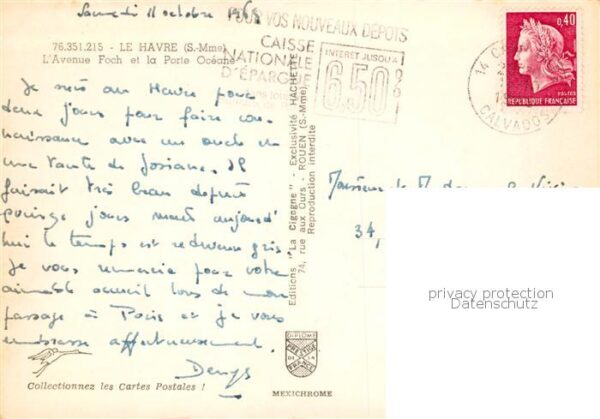 Samedi 11 octobre 1969
POUR VOS NOUVEAUX DÉPOTS
CAISSE
NATIONALE
D'ÉPARGNE
INTERET JUSQU'A
6.50 %
0,40
POSTES
REPUBLIQUE FRANÇAISE
14 C
CALVADOS
76.351.215 - LE HAVRE (S.-Mme)
L'Avenue Foch et la Porte Océane
Je suis au Havre pour
deux jours pour faire con-
naissance avec un oncle et
une tante de Josiane. Il
faisait très beau depuis
quinze jours mais aujourd'
hui le temps est redevenu gris
Je vous remercie pour votre
aimable accueil lors de mon
passage à Paris et je vous
embrasse affectueusement.
Denys
Collectionnez les Cartes Postales !
Editions "La Cigogne" - Exclusivité HACHETTE
74, rue aux Ours - ROUEN (S.-Mme)
Reproduction interdite
DIPLOME
PRESTIGE
DE LA
FRANCE
MEXICHROME
Monsieur et Mme
34,
privacy protection
Datenschutz